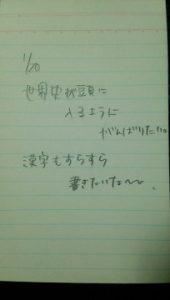 1/20
世界史が頭に
入るように
がんばりたい。
漢字もすらすら
書きたいな〜〜。